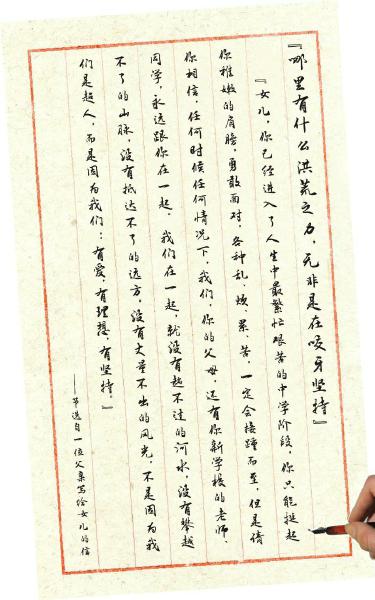 『哪里有什么洪荒之力，无非是在咬牙坚持』
『女儿，你已经进入了人生中最繁忙艰苦的中学阶段，你只能挺起
你稚嫩的肩膀，勇敢面对，各种乱、烦、累、苦，一定会接踵而至，但是请
你相信，任何时候任何情况下，我们，你的父母，还有你新学校的老师、
同学，永远跟你在一起。我们在一起，就没有趟不过的河水，没有攀越
不了的山脉，没有抵达不了的远方，没有丈量不出的风光，不是因为我
们是超人，而是因为我们：有爱，有理想，有坚持。』
——节选自一位父亲写给女儿的信